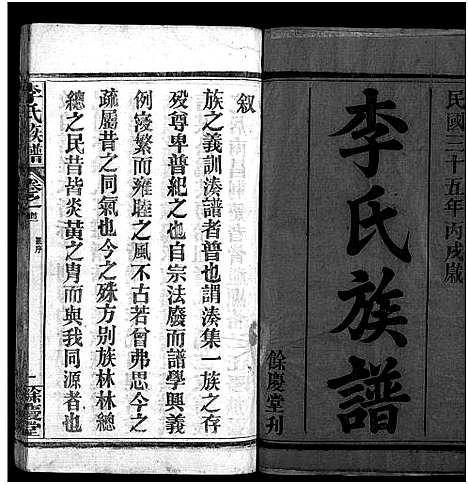 民國三十五年丙戌歲
李氏族譜
餘慶堂刋
叙
族之義訓湊譜者普也謂湊集一族之存
歿尊卑普紀之也自宗法廢而譜學興義
例寖繁而雍睦之風不古若曾弗思今之
疏屬昔之同氣也今之殊方別族林林總
總之民昔皆炎黃之胄而與我同源者也
李氏族譜
卷之首
餘慶堂